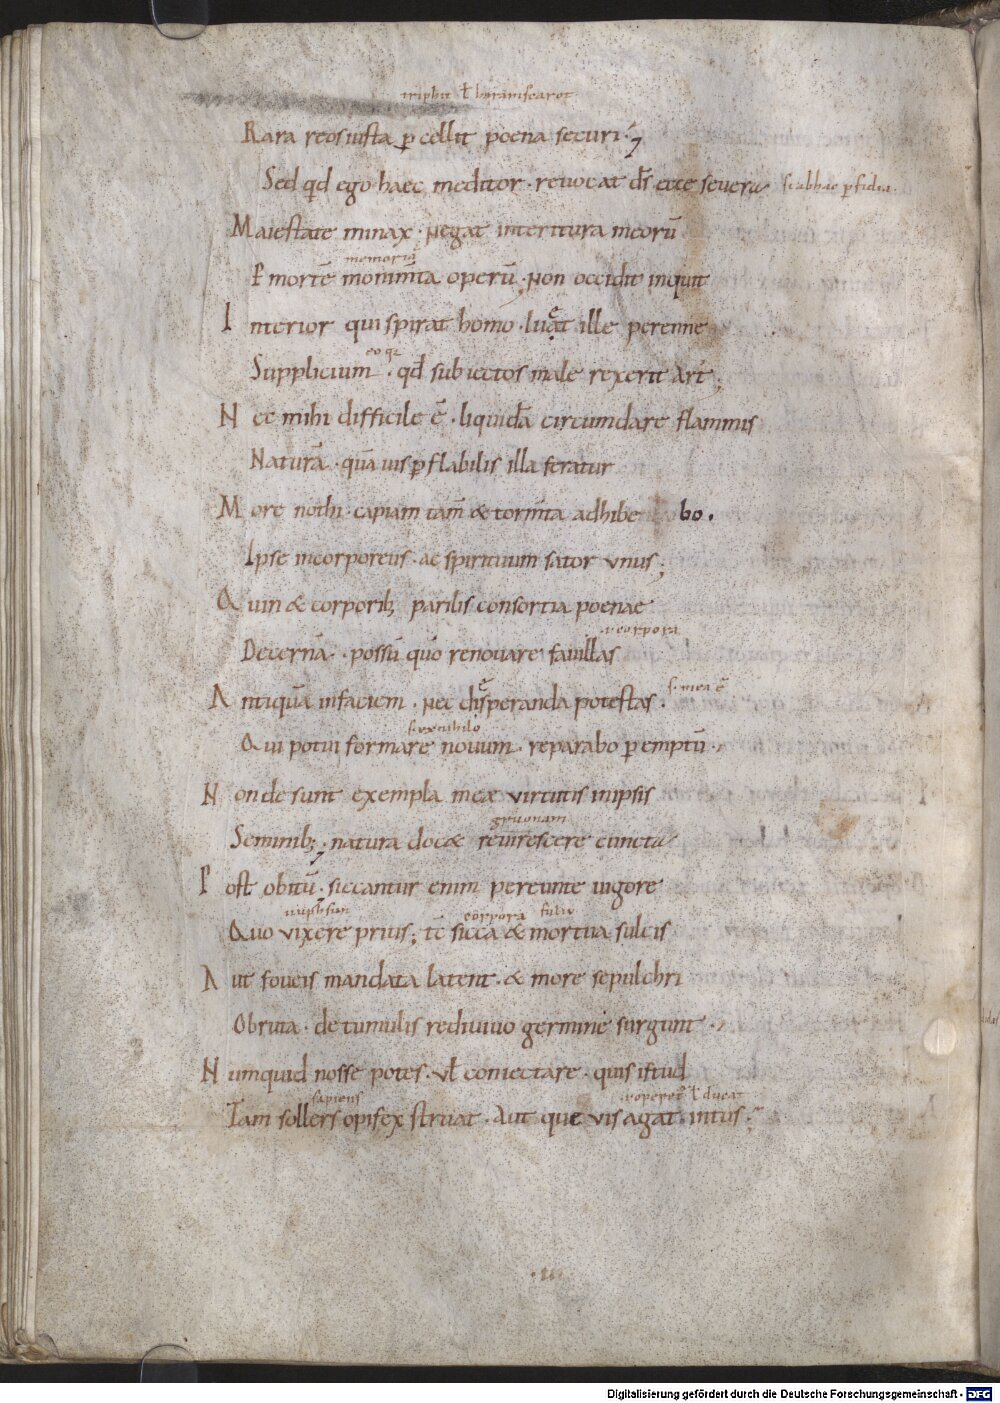 Rara reos iusta p̱cellit poena securi·;
Sed qd̄ ego haec meditor· reuocat d̄s ecce seuera
Maiestate minax· Negat interitura meorū
memoriā
P mortē monim̄ta operū· Non occidit inquit
Interior qui spirat homo· luet ille perenne
eo qd
Supplicium· qd̄ subiectos male rexerit art;
Nec mihi difficile ē· liquidā circumdare flammis
Naturā· quāuis p̱flabilis illa feratur
More nothi· capiam tam̄ & torm̄ta adhibebo·
Ipse incorporeus· ac spirituum sator vnus;
Quin & corporib; parilis consortia poenae
corpora
Decernā· possū quō renouare fauillas
Antiquā infaciem· Nec desperanda potestas· s. mea ē
s. exnihilo
Qui potui formare nouum· reparabo p̱emptū·
Non de sunt exempla meae virtutis inipsis
Seminib;· natura docǣ reuirescere cuncta
Post obitū· siccantur enim pereunte uigore
corpora
Quo vixere prius; tc̄ sicca & mortua sulcis
Aut foueis mandata latent· & more sepulchri
Obruta· de tumulis rediuiuo germine surgunt·
Numquid nosse potes· vł coniectare· quis istud
sapiens
Tam sollers opifex struat· Aut que vis agat intus·;
Digitalisierung gefördert durch die Deutsche Forschungsgemeinschaft · DFG